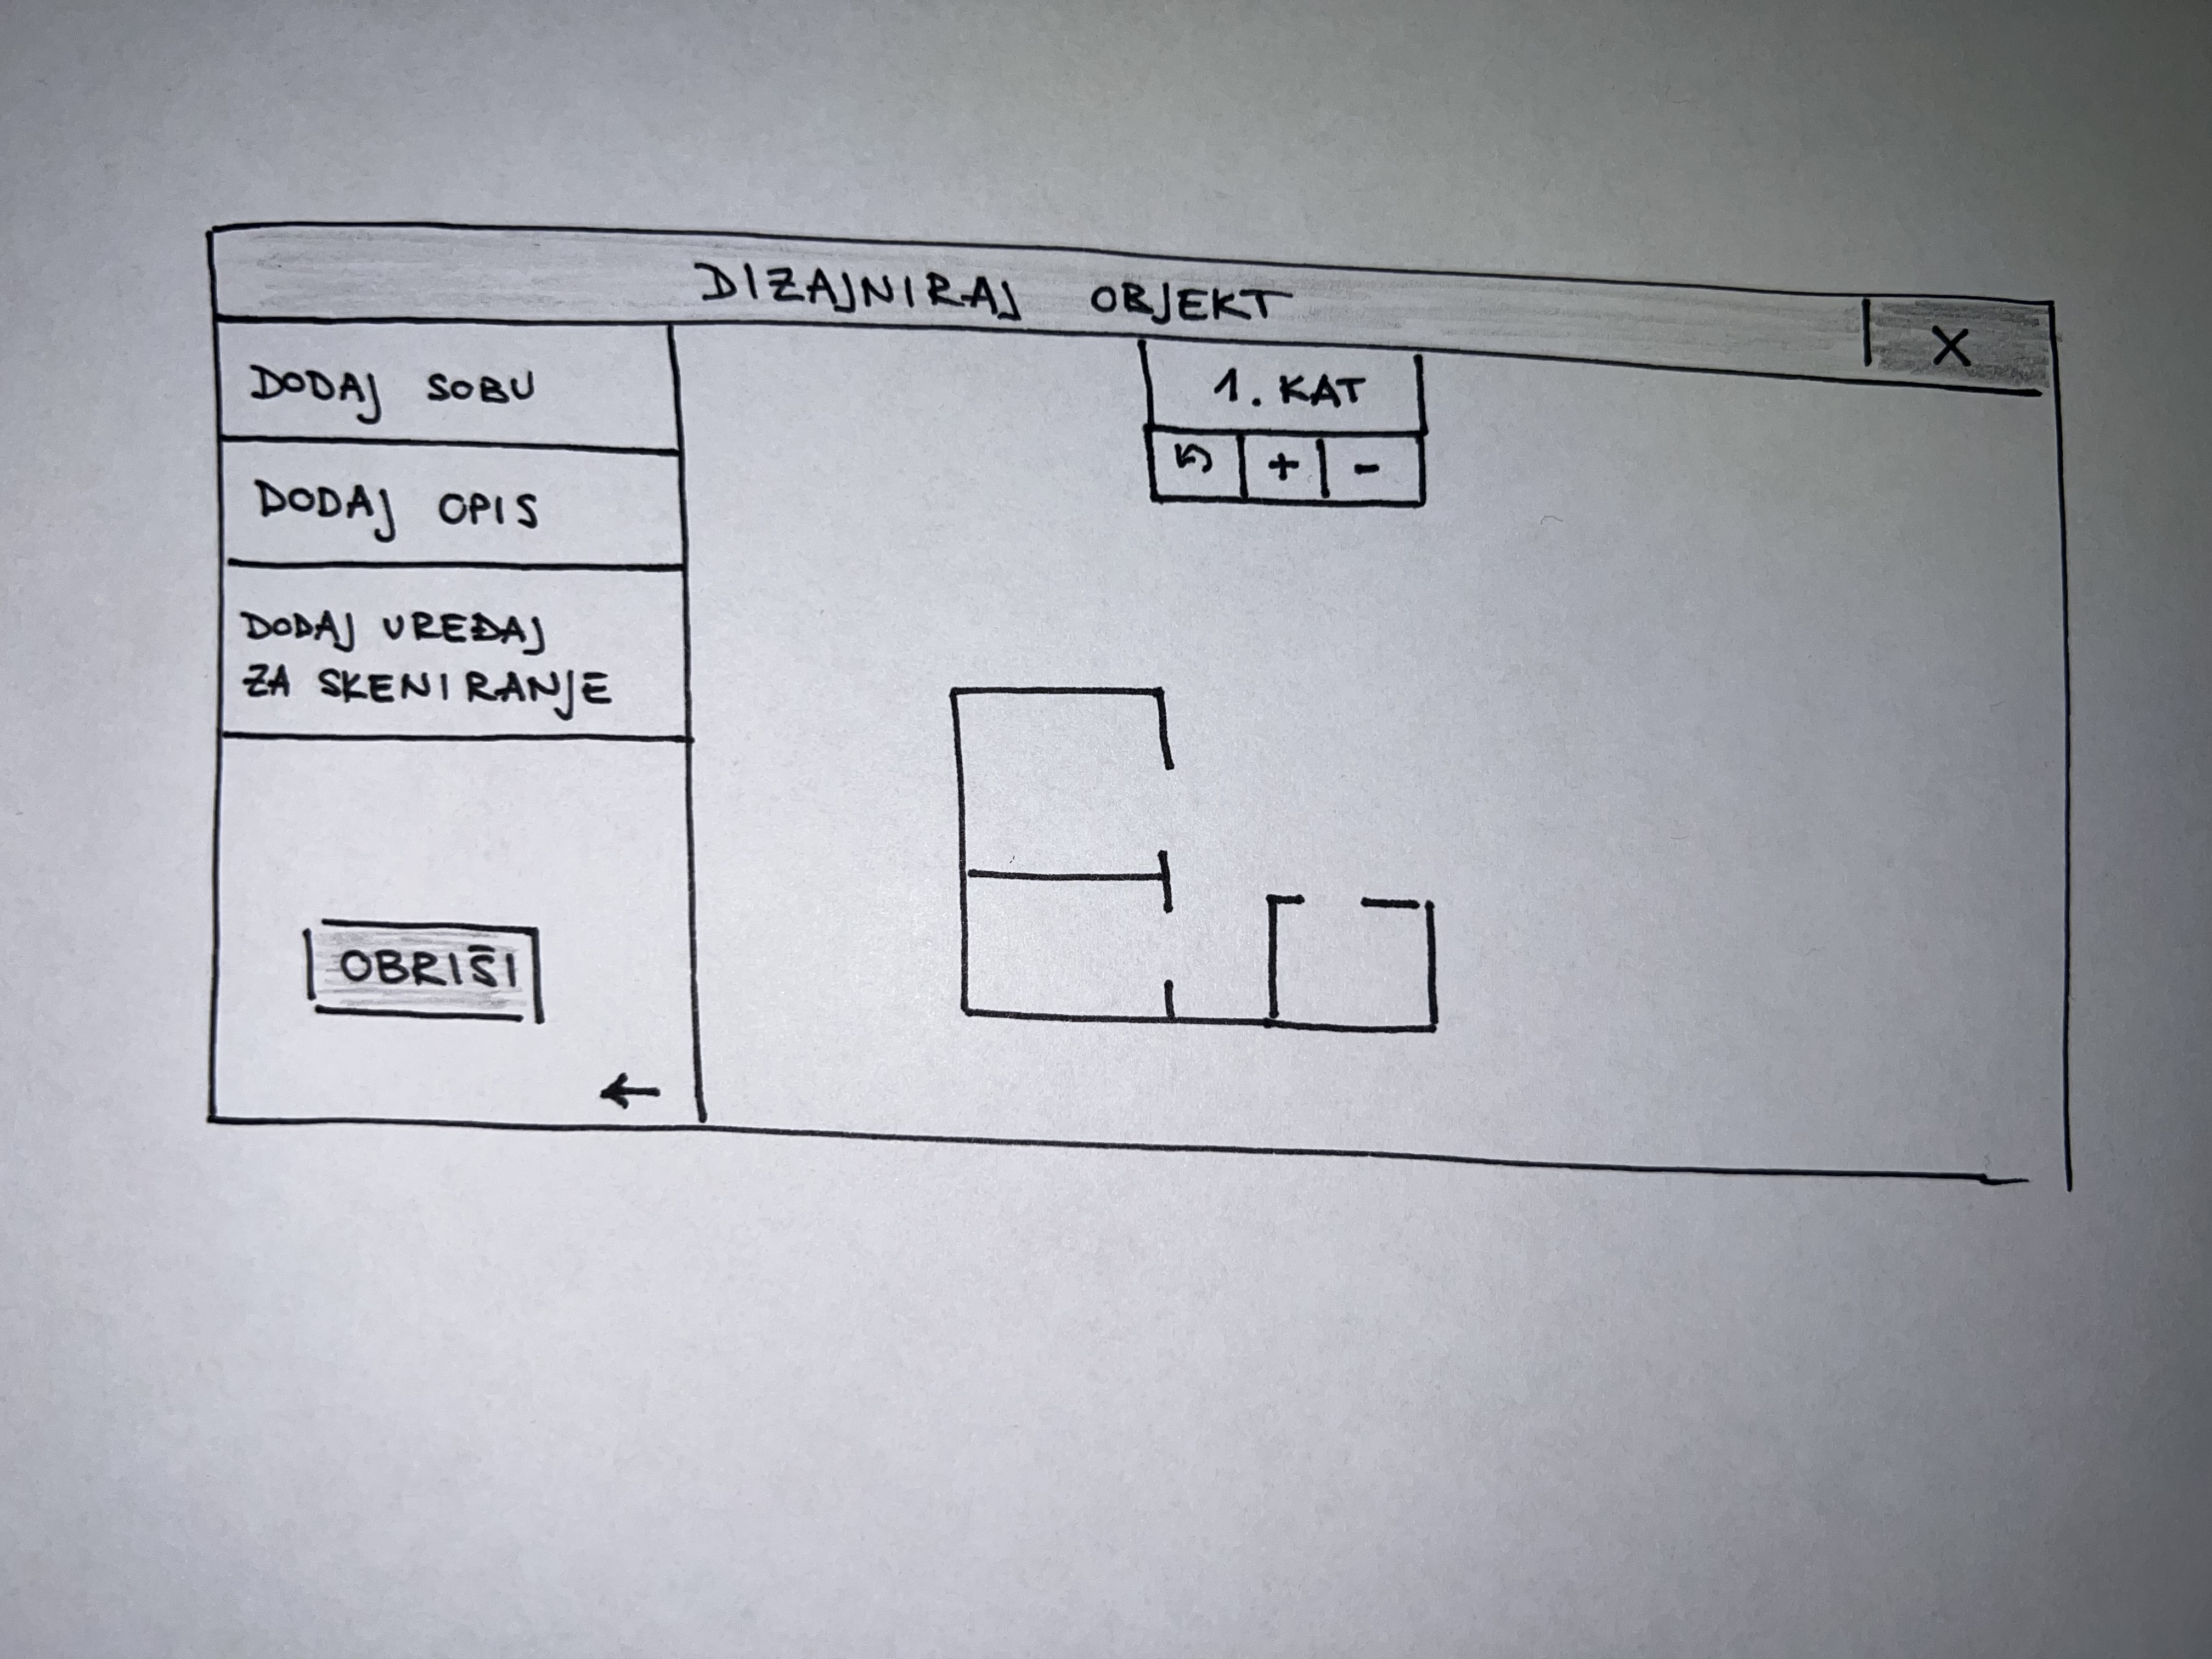 DIZAJNIRAJ OBJEKT
X
DODAJ SOBU
DODAJ OPIS
DODAJ UREĐAJ
ZA SKENIRANJE
OBRIŠI
←
1. KAT
↶ + -